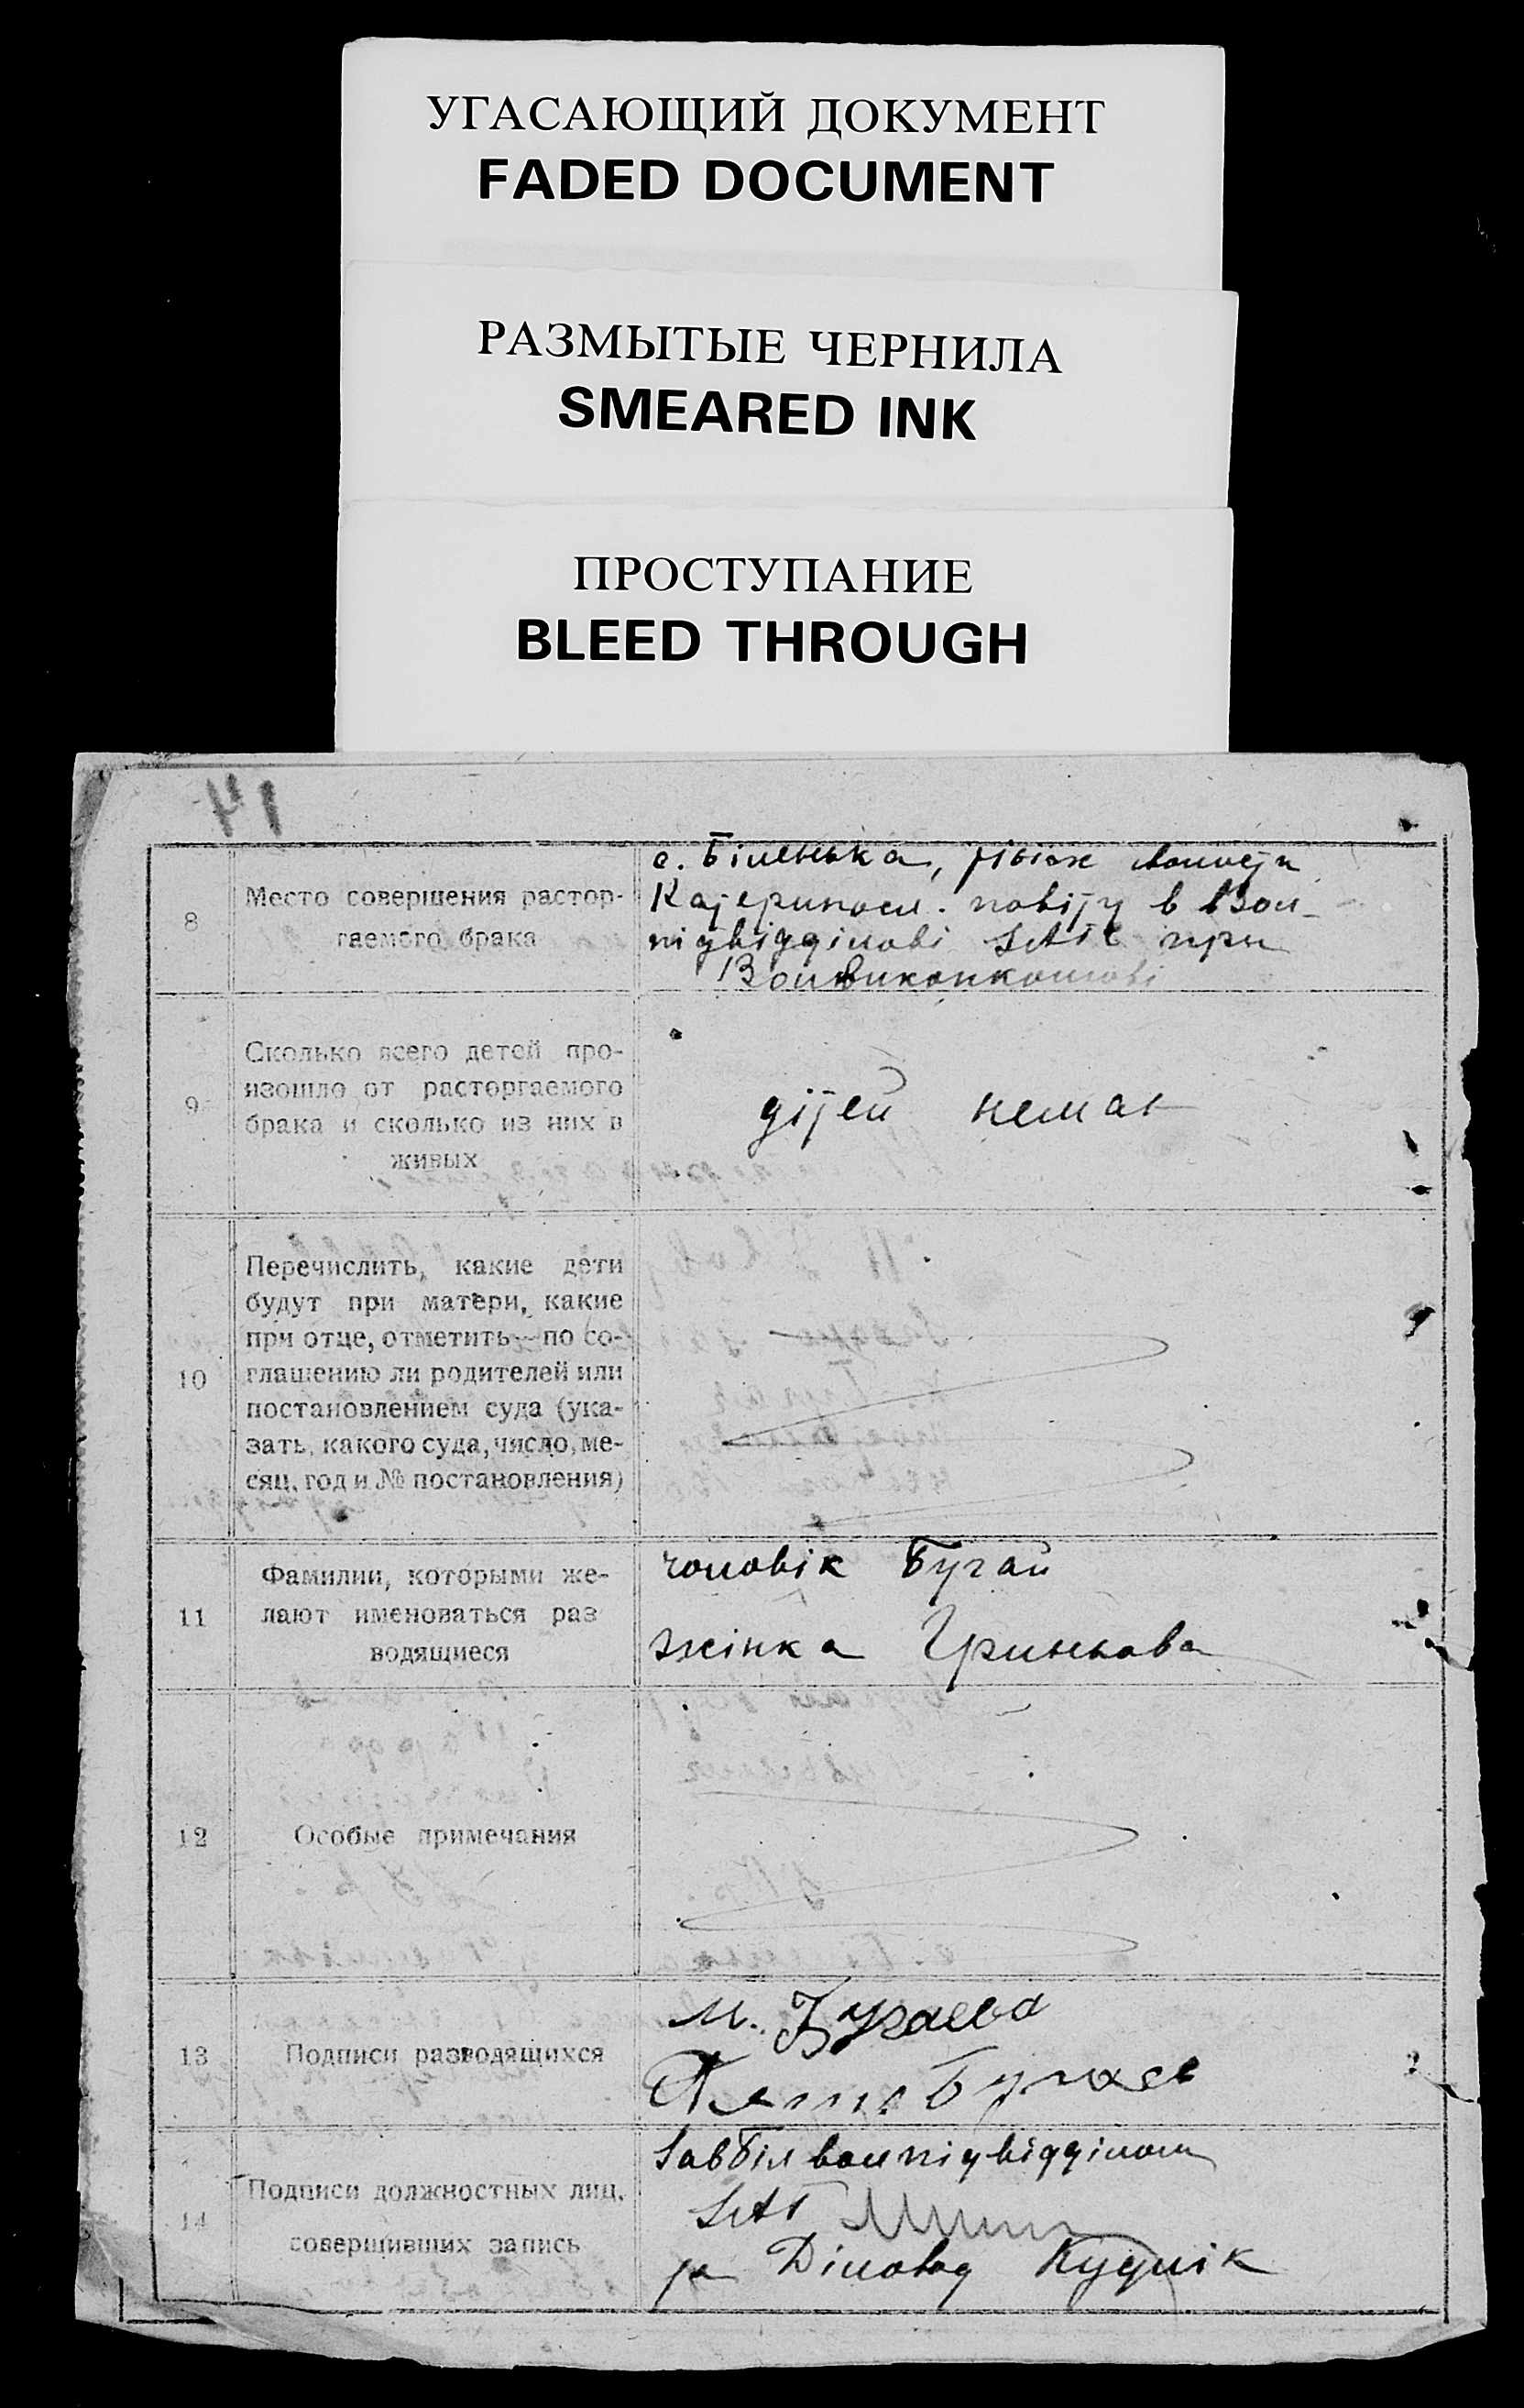 УГАСАЮЩИЙ ДОКУМЕНТ
FADED DOCUMENT
РАЗМЫТЫЕ ЧЕРНИЛА
SMEARED INK
ПРОСТУПАНИЕ
BLEED THROUGH
8
Место совершения растор-
гаемого брака
с. Біленька, тієіж волости
Катериносл. повіту в Вол-
підвідділові ЗАГС при
Волвиконкомові
9
Сколько всего детей про-
изошло от расторгаемого
брака и сколько из них в
живых
дітей немає
10
Перечислить, какие дети
будут при матери, какие
при отце, отметить—по со-
глашению ли родителей или
постановлением суда (ука-
зать, какого суда, число, ме-
сяц, год и № постановления)
11
Фамилии, которыми же-
лают именоваться раз
водящиеся
чоловік Бугай
жінка Гринькова
12
Особые примечания
13
Подписи разводящихся
М. Бугаева
Бугаев
14
Подписи должностных лиц,
совершивших запись
ЗавБіл волпідвідділом
ЗАГ
та Діловод Кудлік